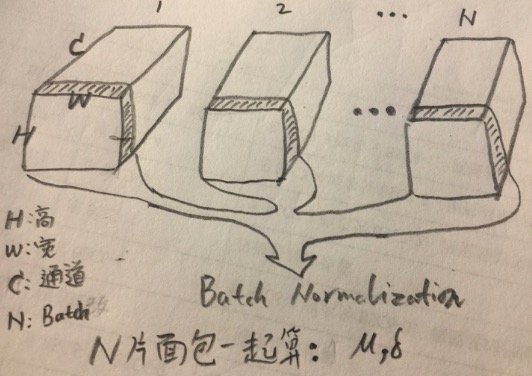 1 2 … N
C
W
H
H:高
W:宽
C:通道
N: Batch
Batch Normalization
N片面包一起算: μ,δ